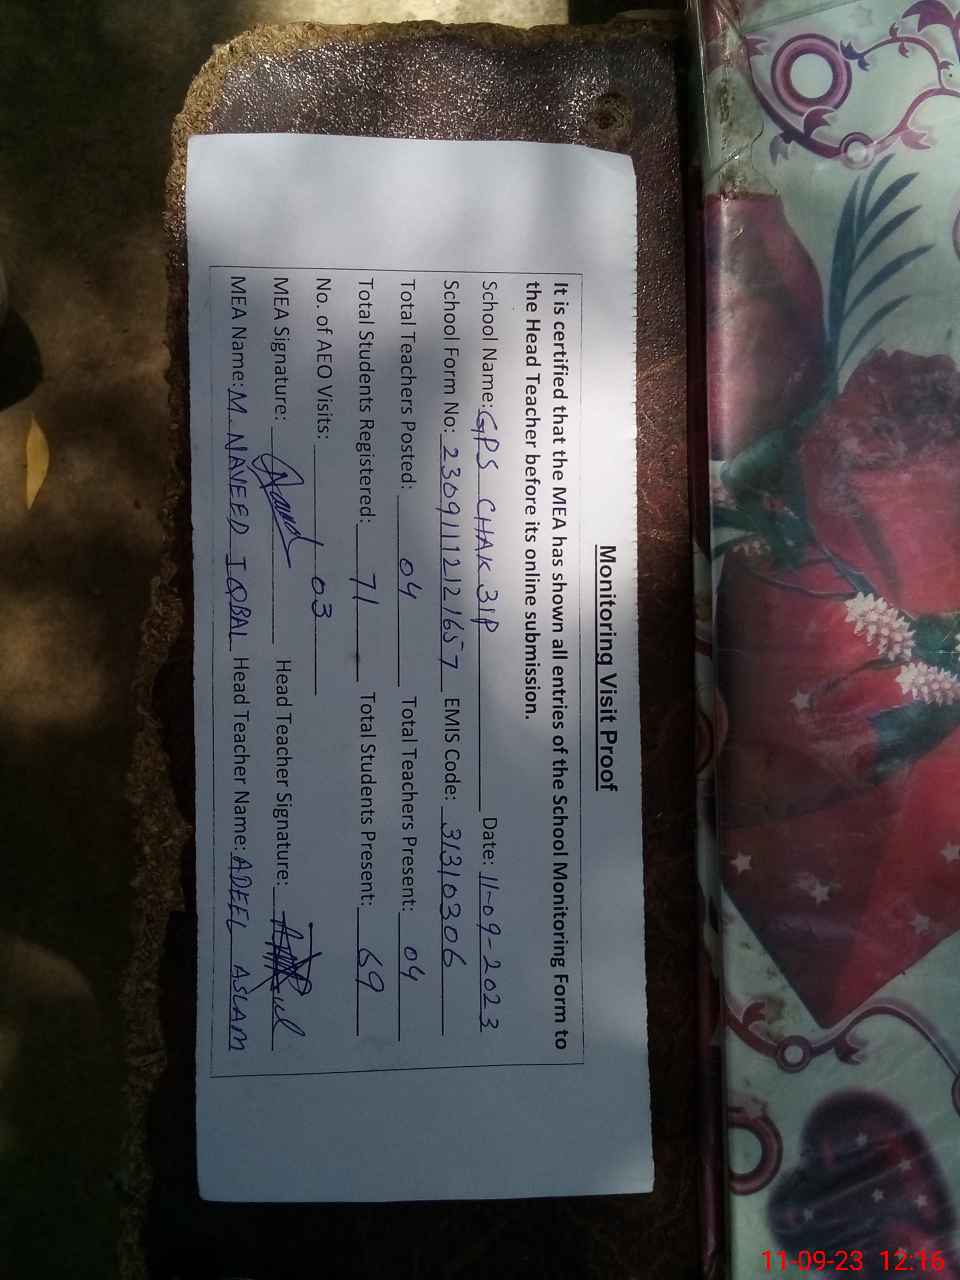 Monitoring Visit Proof
It is certified that the MEA has shown all entries of the School Monitoring Form to
the Head Teacher before its online submission.
School Name: GPS CHAK 31P Date: 11-09-2023
School Form No: 23091112121657 EMIS Code: 31310306
Total Teachers Posted: 04 Total Teachers Present: 04
Total Students Registered: 71 Total Students Present: 69
No. of AEO Visits: 03
MEA Signature: Head Teacher Signature:
MEA Name: M. NAVEED IQBAL Head Teacher Name: ADEEL ASLAM
11-09-23 12:16